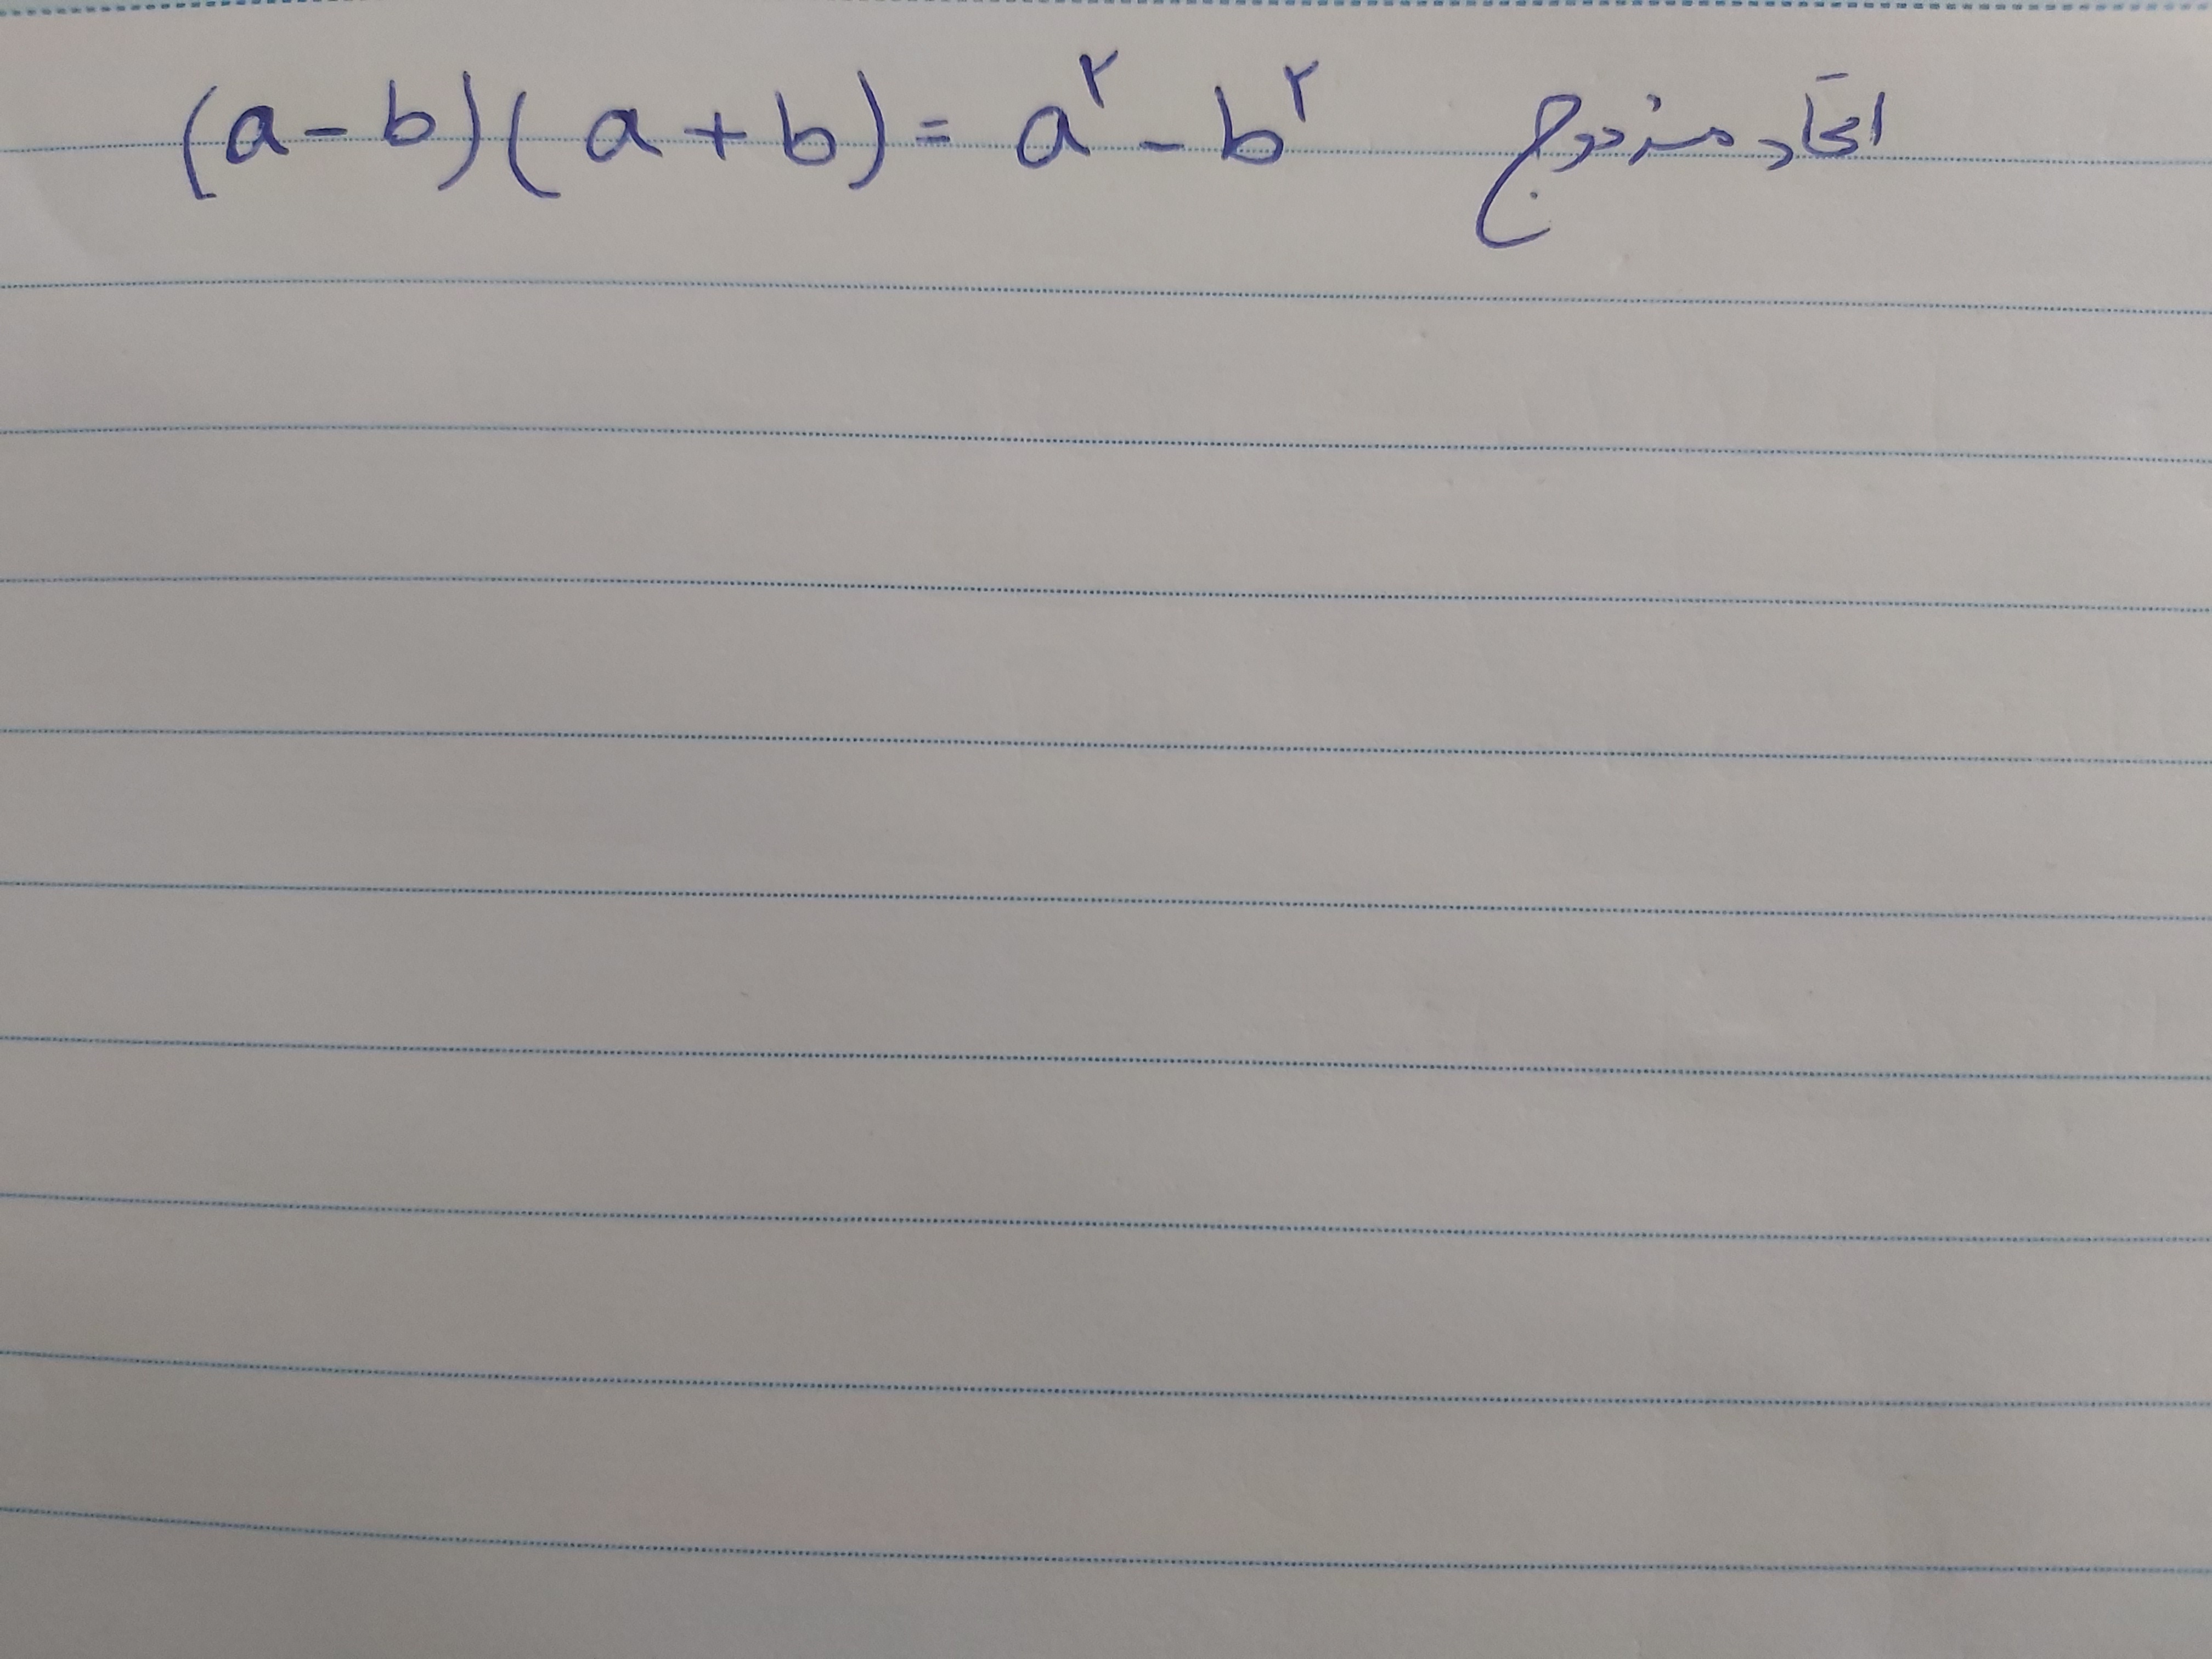 (a-b)(a+b)= a^۲ - b^۲ اتحاد مزدوج